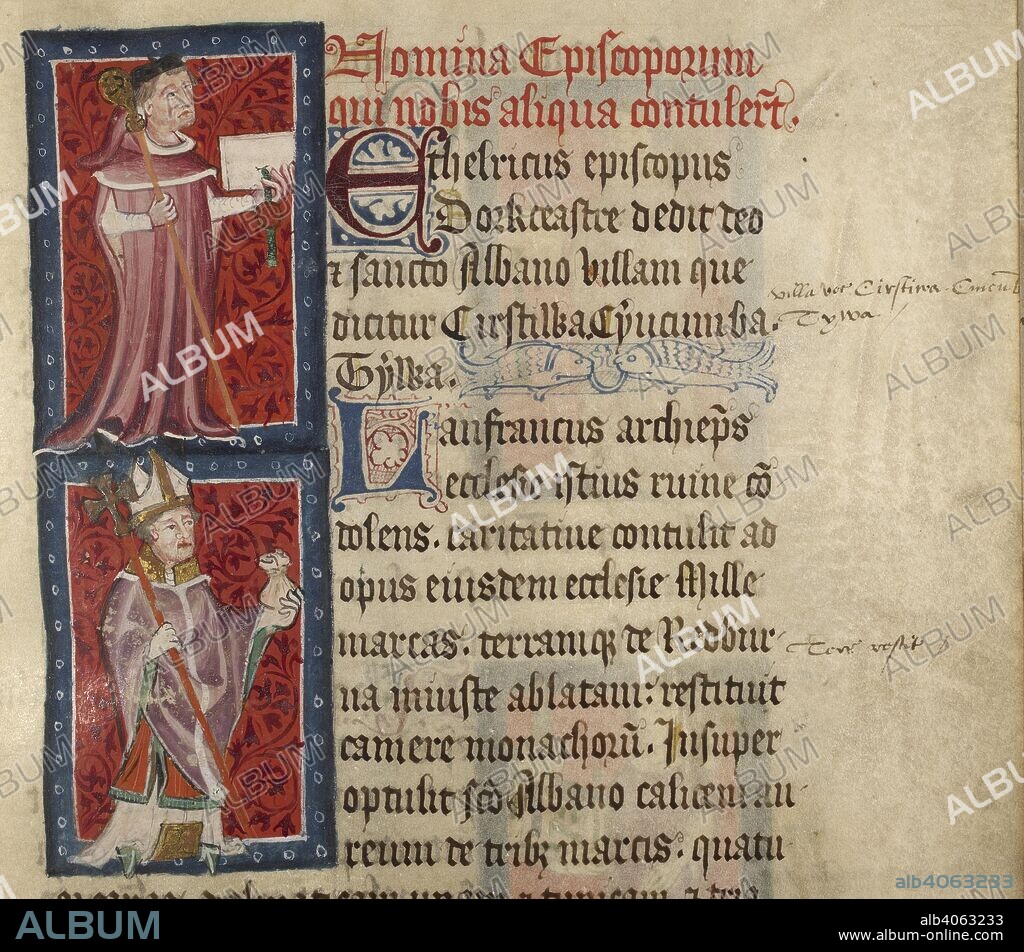 Nomina Episcoporum
qui nobis aliqua contulert̄.
Ethelricus episcopus
Dorkceastre dedit deo
⁊ sancto Albano villam que
dicitur Cirstilwa. Cyucumba.
Tylwa.
Lanfrancus archiep̄s
ecclesie istius ruine cō
dolens. caritatiue contulit ad
opus eiusdem ecclesie Mille
marcas. terramqꝫ de Redbur
na iniuste ablatam: restituit
camere monachorū. Insuper
optulit sc̄o Albano calicem au
reum de tribꝫ marcis. quatu
villa voc Cirstiwa
Tywa
ALBUM
alb4063233
ALBUM
alb4063233
www.album-online.com